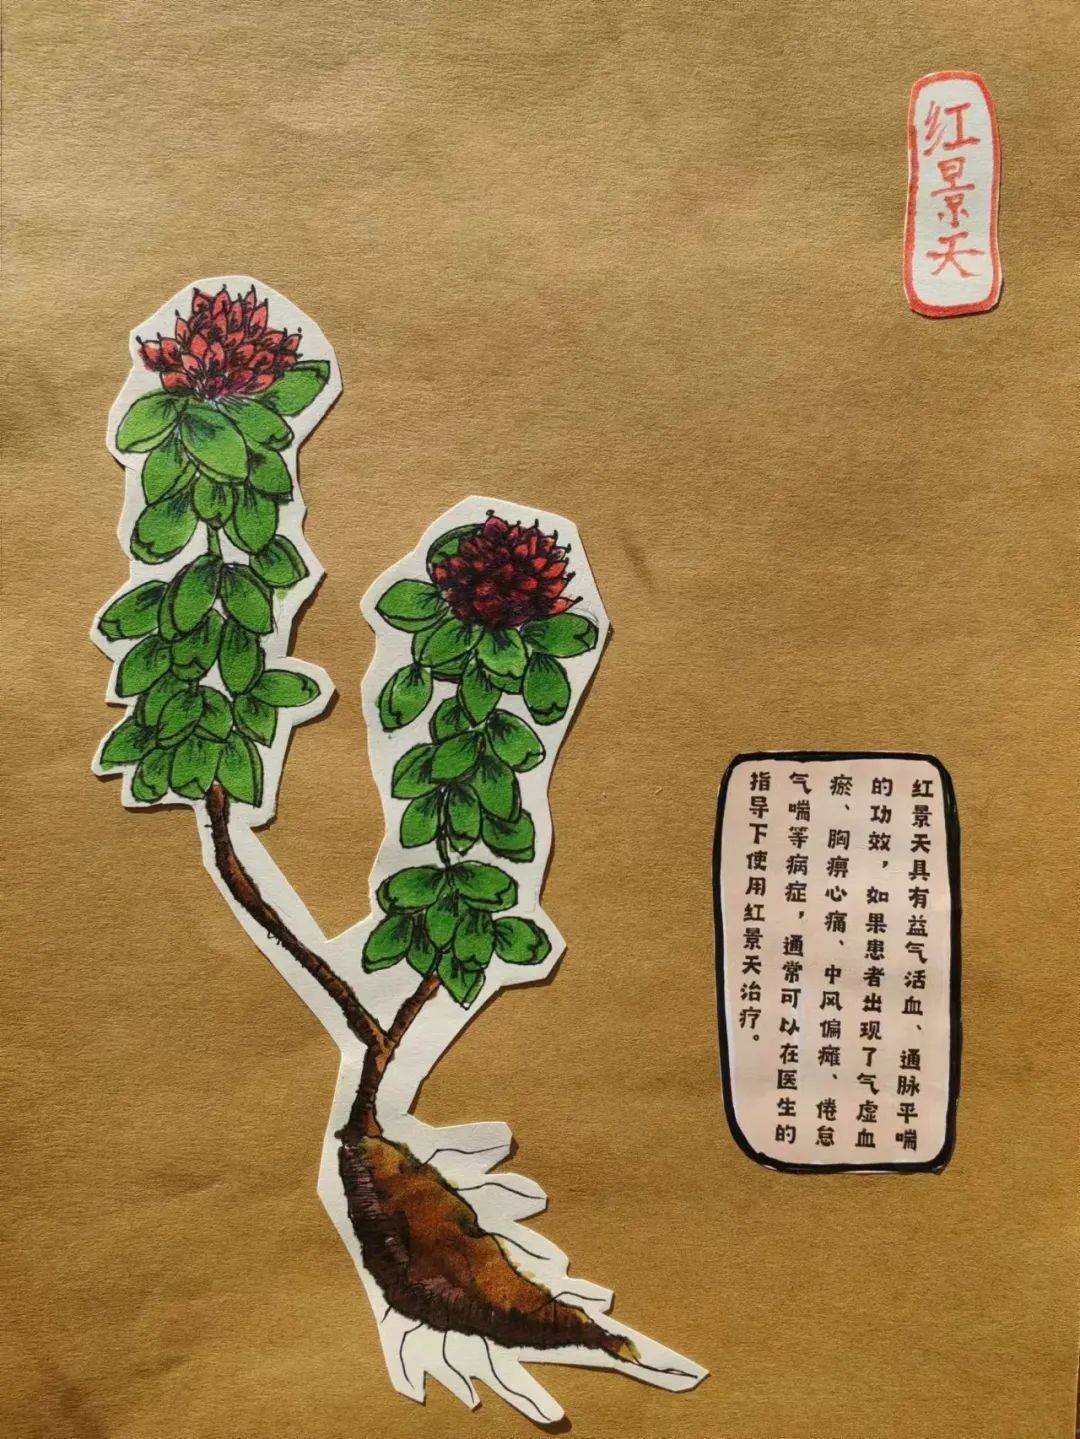 红景天
红景天具有益气活血、通脉平喘
的功效，如果患者出现了气虚血
瘀、胸痹心痛、中风偏瘫、倦怠
气喘等病症，通常可以在医生的
指导下使用红景天治疗。